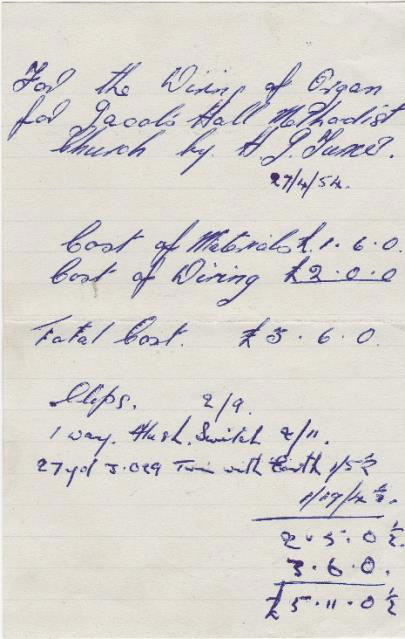 For the Wiring of Organ
for Jacob's Hall Methodist
Church by. H. J. Turner.
27/4/54.
Cost of Materials £.1.6.0.
Cost of Wiring £2.0.0
Total Cost. £3.6.0.
Clips. 2/9.
1 way. Flush. Switch 2/11.
27 yd 3.029 Twin with Earth 1/5½
1/19/4½.
2.5.0½.
3.6.0.
£5.11.0½